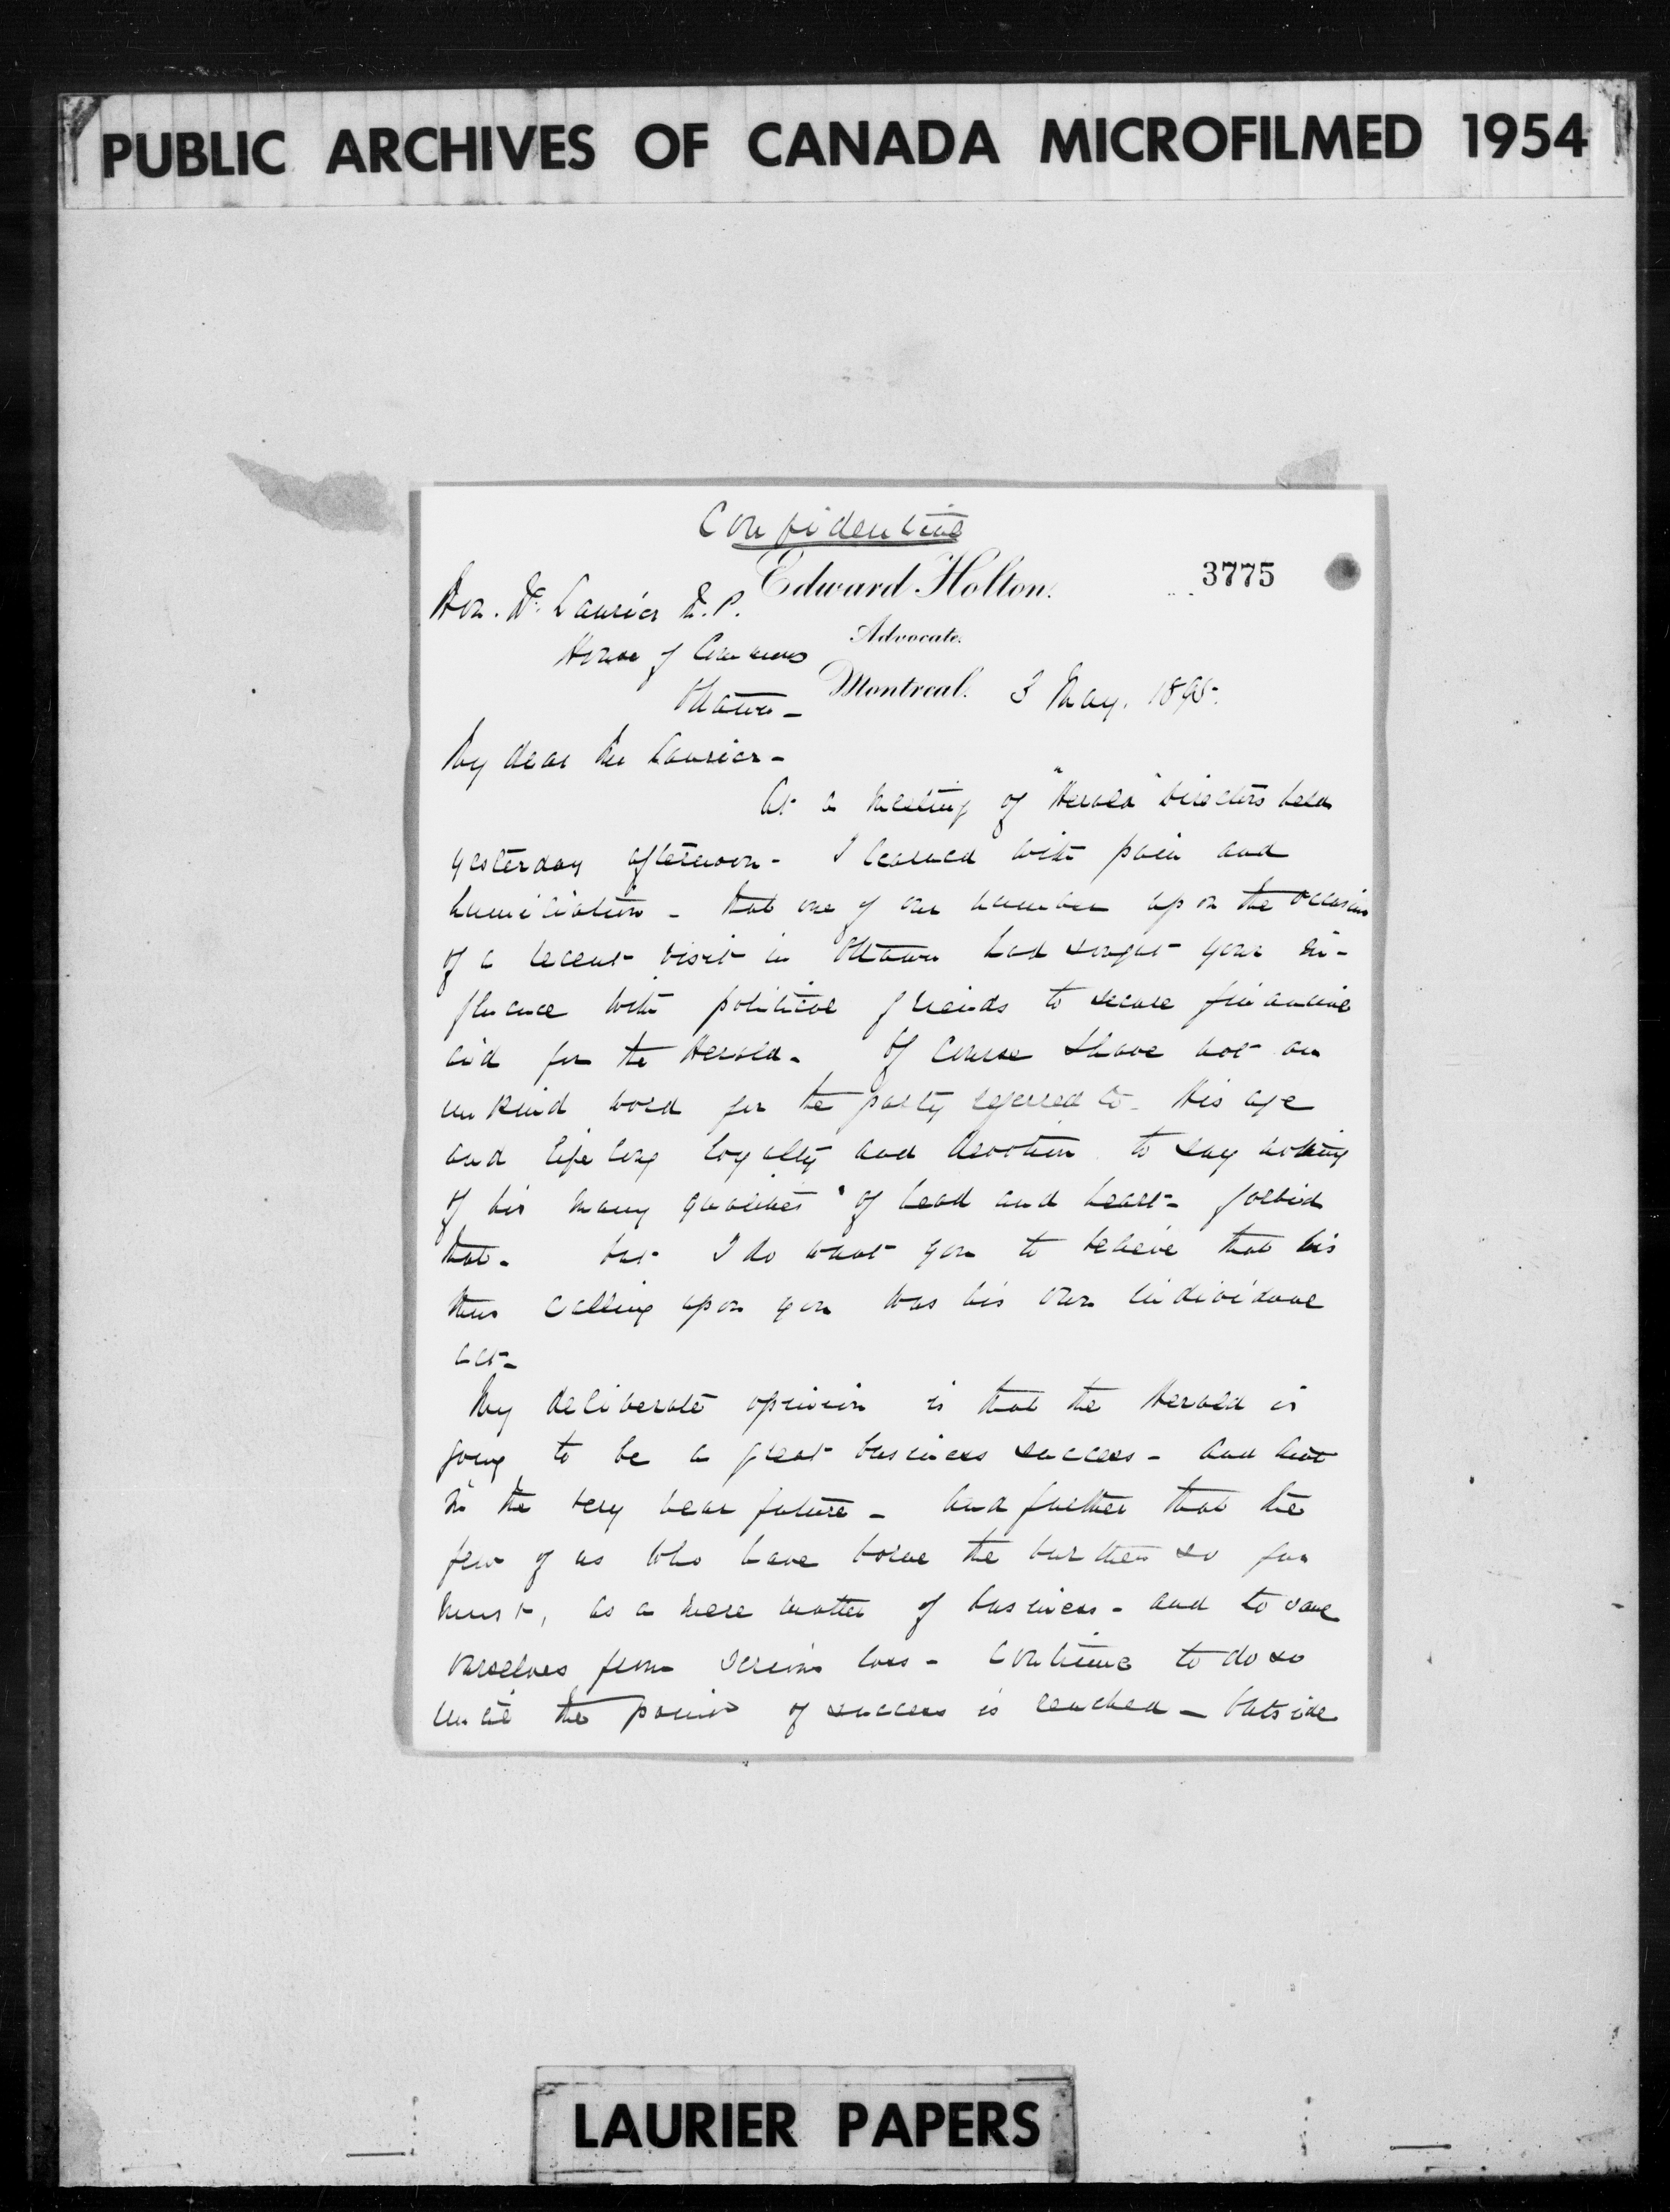 PUBLIC ARCHIVES OF CANADA MICROFILMED 1954
Confidential
Edward Holton.
3775
Hon. W. Laurier M.P.
Advocate.
House of Commons
Montreal. 3 May. 1895.
Ottawa -
My dear Mr Laurier -
At a meeting of "Herald" Directors held
yesterday afternoon - I learned with pain and
humiliation - that one of our number upon the occasion
of a recent visit in Ottawa had sought your in-
fluence with political friends to secure financial
aid for the Herald - Of course I have not an
unkind word for the party referred to - His age
and life long loyalty and devotion to say nothing
of his many qualities of head and heart - forbid
that - but I do want you to believe that his
thus calling upon you was his own individual
act -
My deliberate opinion is that the Herald is
going to be a great business success - and that
in the very near future - and further that the
few of us who have borne the burthen so far
must, as a mere matter of business - and to save
ourselves from serious loss - continue to do so
until the point of success is reached - Outside
LAURIER PAPERS